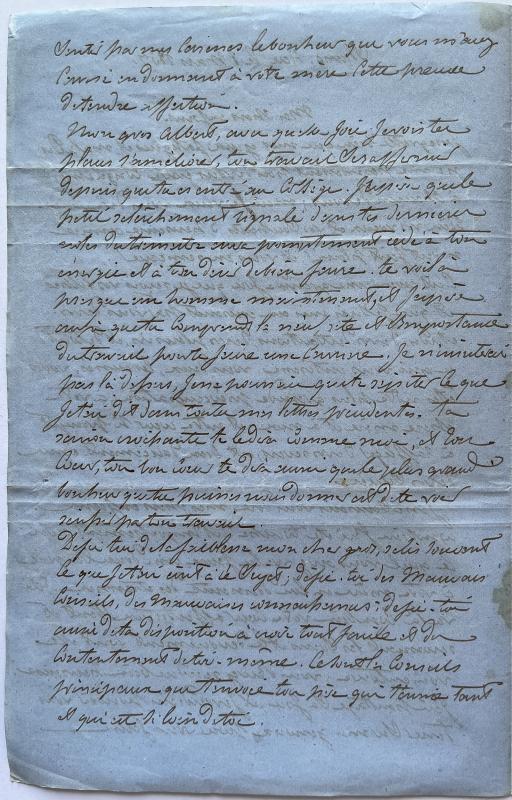 par mes caresses le bonheur que vous m'avez
causé en donnant à votre mère cette preuve
de tendre affection.
Mon gros Albert, avec quelle joie je vois tes
places s'améliorer, ton travail s'affermir
depuis que tu es entré au Collège. J'espère que le
petit relâchement signalé dans tes dernières
notes du trimestre aura promptement cédé à ton
énergie et à ton désir de bien faire. te voilà
presque un homme maintenant, et j'espère
aussi que tu comprends la nécessité et l'importance
du travail pour te faire une carrière. Je n'insisterai
pas là dessus, je ne pourrais que te répéter ce que
je t'ai dit dans toutes mes lettres précédentes. ta
raison croissante te le dira comme moi, et ton
cœur, ton bon cœur te dira aussi que le plus grand
bonheur que tu puisses nous donner est de te voir
par ton travail.
Défie toi de la faiblesse mon cher gros, relis souvent
ce que je t'ai écrit à ce sujet; défie-toi des mauvais
conseils, des mauvaises connaissances; défie-toi
aussi de ta disposition à croire tout facile et du
contentement de toi-même. Ce sont les conseils
principaux que t'envoie ton père qui t'aime tant
et qui est si loin de toi.